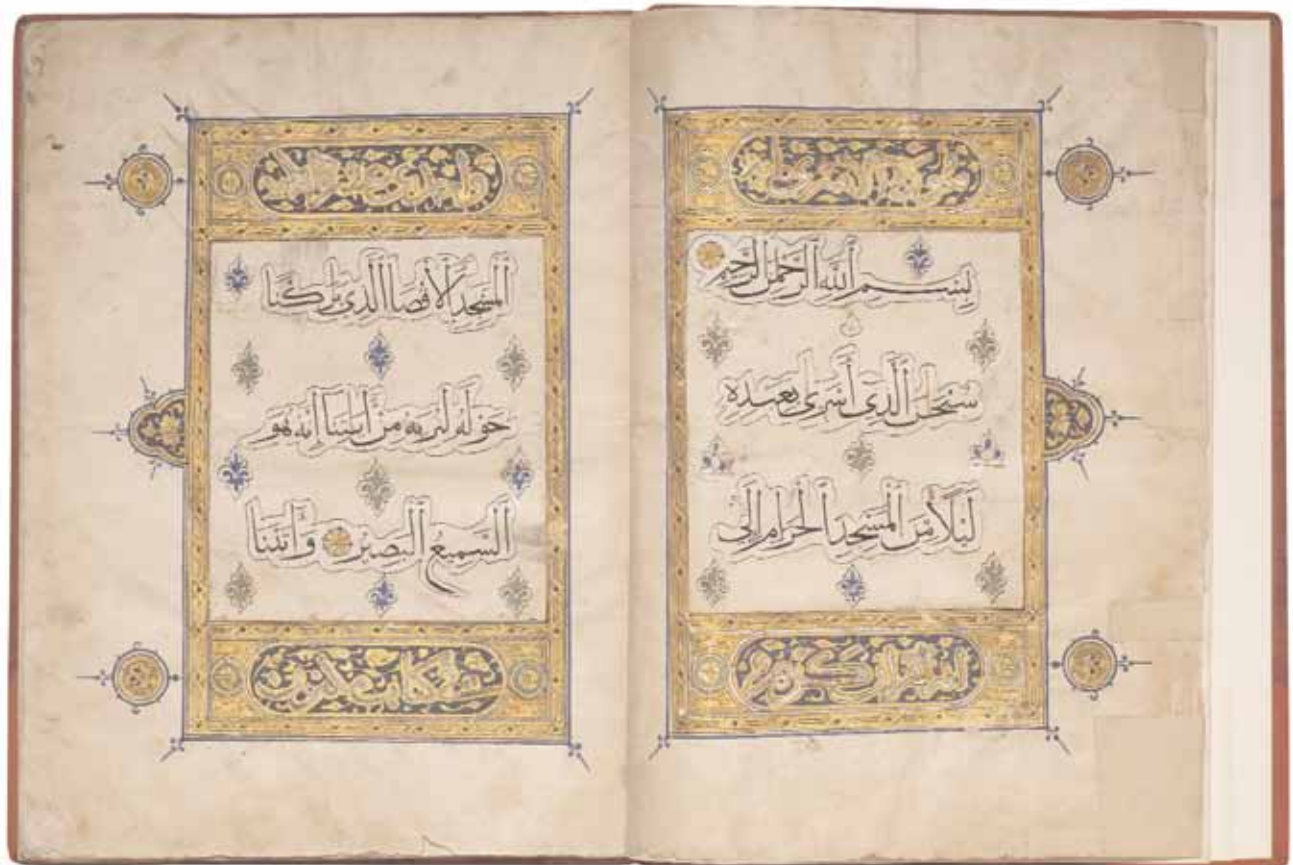 بِسْمِ ٱللَّهِ ٱلرَّحْمَٰنِ ٱلرَّحِيمِ
سُبْحَٰنَ ٱلَّذِى أَسْرَىٰ بِعَبْدِهِ
لَيْلًا مِّنَ ٱلْمَسْجِدِ ٱلْحَرَامِ إِلَى
ٱلْمَسْجِدِ ٱلْأَقْصَا ٱلَّذِى بَٰرَكْنَا
حَوْلَهُ لِنُرِيَهُ مِنْ ءَايَٰتِنَا إِنَّهُ هُوَ
ٱلسَّمِيعُ ٱلْبَصِيرُ وَءَاتَيْنَا